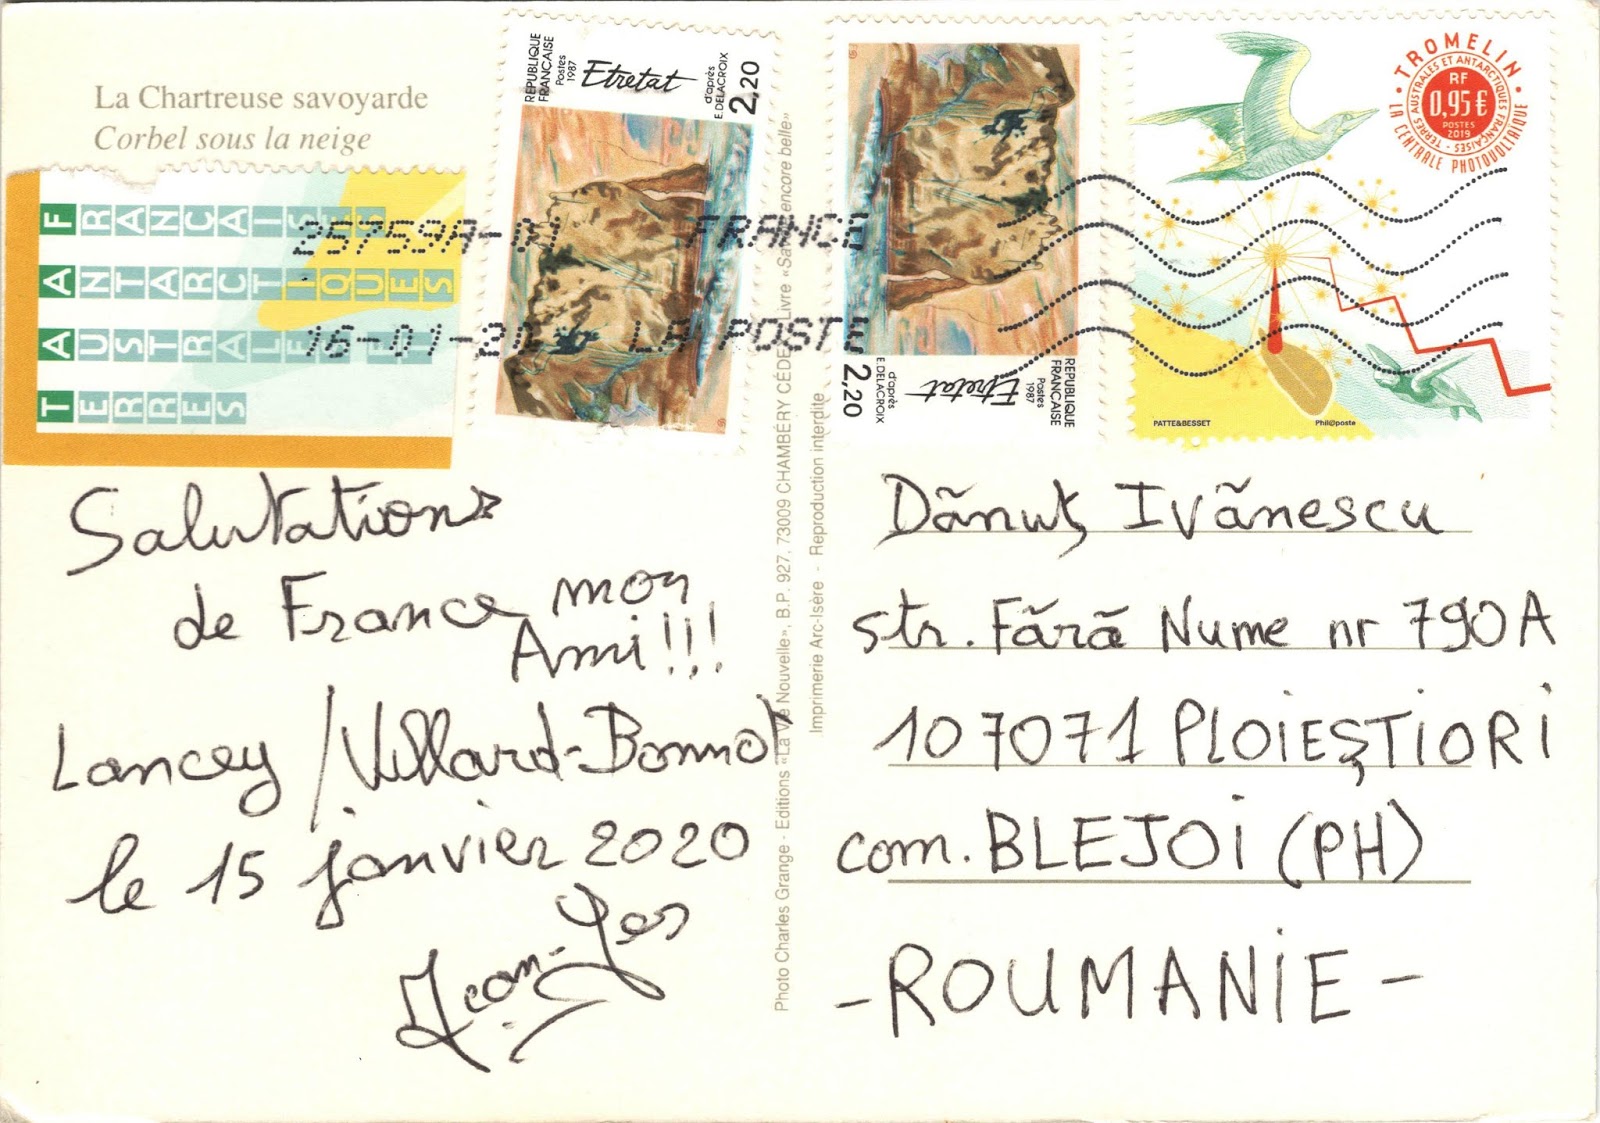 La Chartreuse savoyarde
Corbel sous la neige
TERRES
AUSTRALES ET
ANTARCTIQUES
FRANÇAISES
REPUBLIQUE
FRANÇAISE
Postes
1987
Etretat
d'après
E.DELACROIX
2,20
REPUBLIQUE
FRANÇAISE
Postes
1987
Etretat
d'après
E.DELACROIX
2,20
TROMELIN
TERRES AUSTRALES ET ANTARCTIQUES FRANÇAISES
RF
0,95 €
POSTES
2019
LA CENTRALE PHOTOVOLTAIQUE
PATTE&BESSET
Phil@poste
25759A-01 FRANCE
16-01-20 LA POSTE
Salutations
de France mon
Ami!!!
Lancey / Villard-Bonnot
le 15 janvier 2020
Photo Charles Grange - Editions «La Vie Nouvelle», B.P. 927, 73009 CHAMBÉRY CÉDE Livre encore belle»
Imprimerie Arc-Isère - Reproduction interdite
Dănuţ Ivănescu
str. Fără Nume nr 790A
107071 PLOIEŞTIORI
com. BLEJOI (PH)
- ROUMANIE -